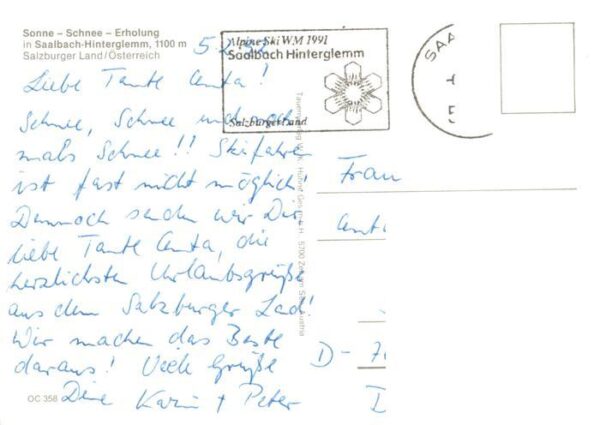 Sonne – Schnee – Erholung
in Saalbach-Hinterglemm, 1100 m
Salzburger Land/Österreich
Alpine Ski WM 1991
Saalbach Hinterglemm
Salzburger Land
SAA
Liebe Tante Anta!
Schnee, Schnee und noch
mals Schnee!! Skifahren
ist fast nicht möglich!
Dennoch senden wir Dir
liebe Tante Anta, die
herzlichsten Urlaubsgrüße
aus dem Salzburger Lad!
Wir machen das Beste
daraus! Viele Grüße
Deine Karin + Peter
OC 358
5700 Zell am See, Austria
Frau
D-7